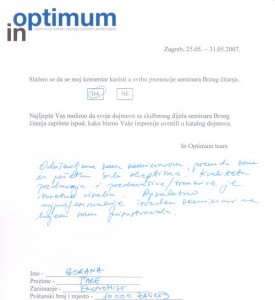 optimum
in
Zagreb, 25.05. – 31.05.2007.
Slažem se da se moj komentar koristi u svrhu promocije seminara Brzog čitanja.
DA NE
Najljepše Vas molimo da svoje dojmove sa službenog dijela seminara Brzog
čitanja zapišete ispod, kako bismo Vaše impresije uvrstili u katalog dojmova.
In Optimum team
Oduševljena sam seminarom, premda sam
u početku bila skeptična. Kvaliteta
predavanja i predavačice/trenerice je
izuzetno visoka. Apsolutno
izvrstan seminar na
kojem sam
Ime - GORANA
Prezime -
Zanimanje - EKONOMIST
Poštanski broj i mjesto - 10000 ZAGREB